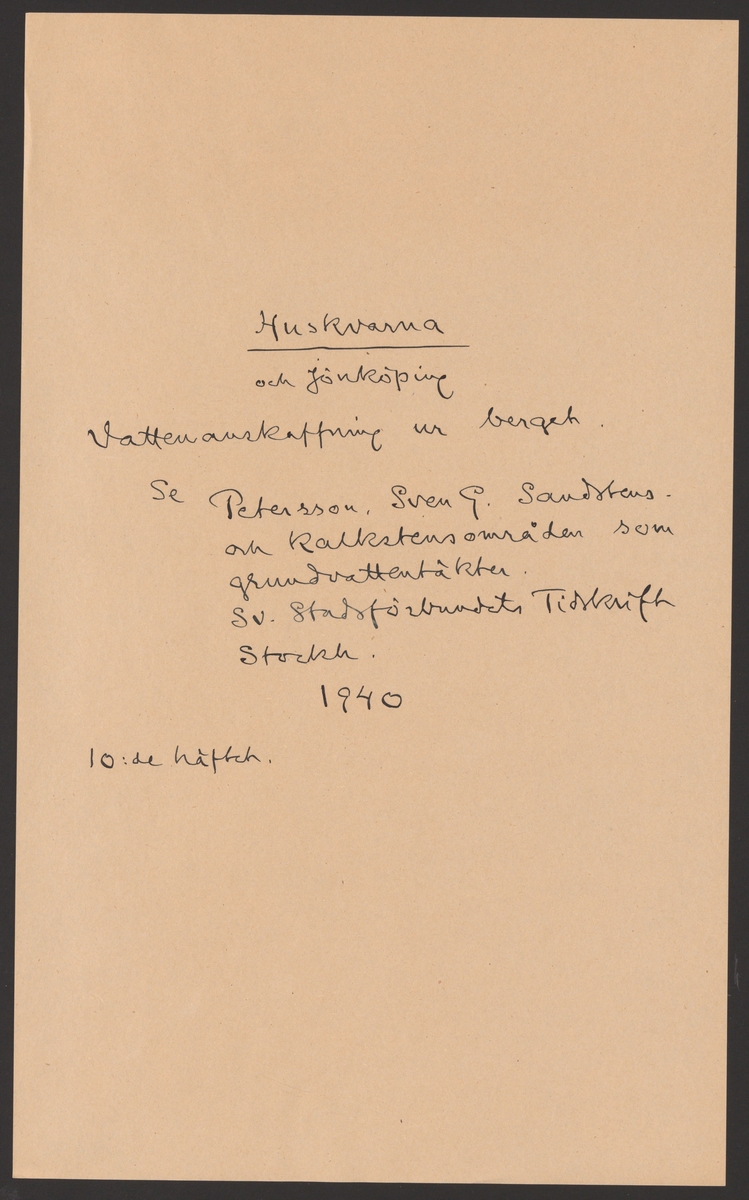 Huskvarna
och Jönköping
Vattenanskaffning ur berget.
Se Petersson, Sven G. Sandstens-
och kalkstensområden som
grundvattentäkter.
Sv. Stadsförbundets Tidskrift
Stockh.
1940
10:de häftet.